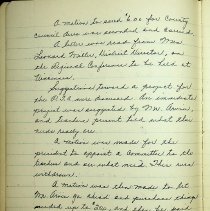 A motion to send $6.00 for County
Council dues was seconded and carried.
A letter was read from Mrs.
Leonard Miller, District Director, on
the Regional Conference to be held at
Suggestions toward a project for
the P.T.A. were discussed. An immediate
project was suggested by Mr. Orvis,
and teachers present told what the
needs
A motion was made for the
president to appoint a Committee to the
teachers and see what need. This was
withdrawn.
A motion was then made to let
Mr. Orvis go ahead and purchase things
needed up to and also be paid